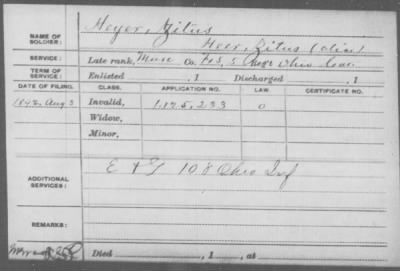 NAME OF SOLDIER: Heyer, Zitus
Heer, Zitus (alias)
SERVICE: Late rank, Musc Co. F&S, 5 Regt Ohio Cav.
TERM OF SERVICE: Enlisted , 1 Discharged , 1
DATE OF FILING. CLASS. APPLICATION NO. LAW. CERTIFICATE NO.
1892, Aug 3 Invalid, 1.125.233 0
Widow,
Minor,
ADDITIONAL SERVICES: E 108 Ohio Inf
REMARKS:
Died , 1 , at